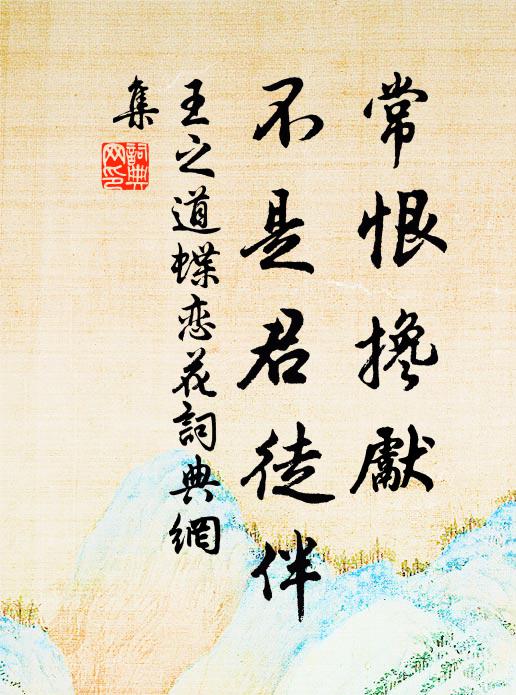 常恨搀獻
不是君徒伴
王之道蝶恋花詞典網
集
詞典
网印